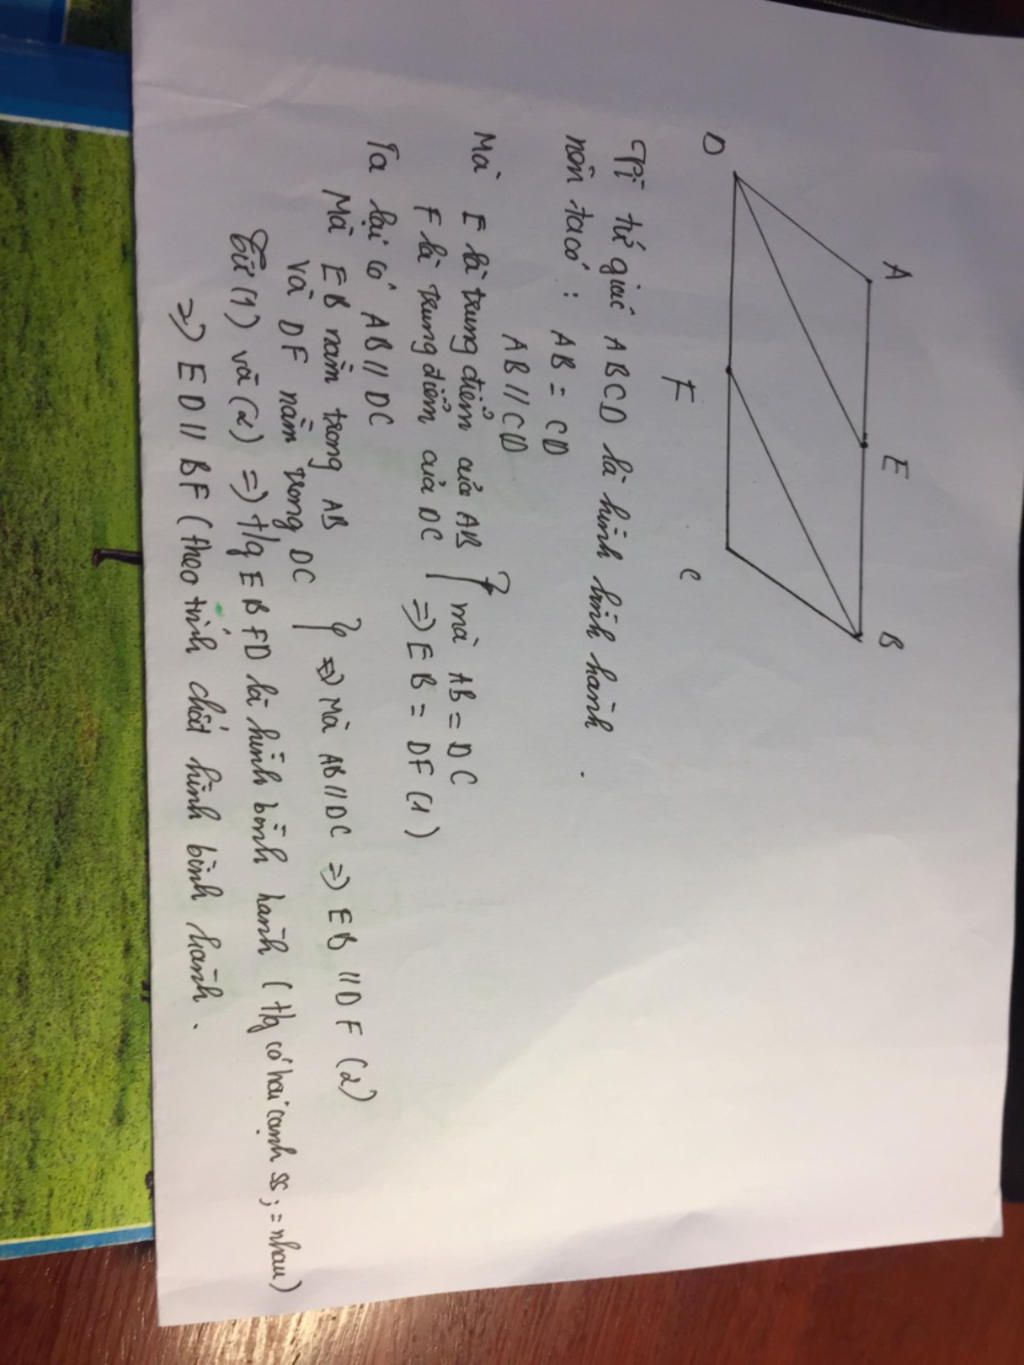 A E B
D F C
Vì tứ giác ABCD là hình bình hành.
nên ta có : AB = CD
AB // CD
Mà E là trung điểm của AB } mà AB = DC
F là trung điểm của DC => EB = DF (1)
Ta lại có AB // DC
Mà EB nằm trong AB } => Mà AB // DC => EB // DF (2)
và DF nằm trong DC
Từ (1) và (2) => t/g EBFD là hình bình hành (t/g có hai cạnh ss ; = nhau)
=> ED // BF (theo tính chất hình bình hành.